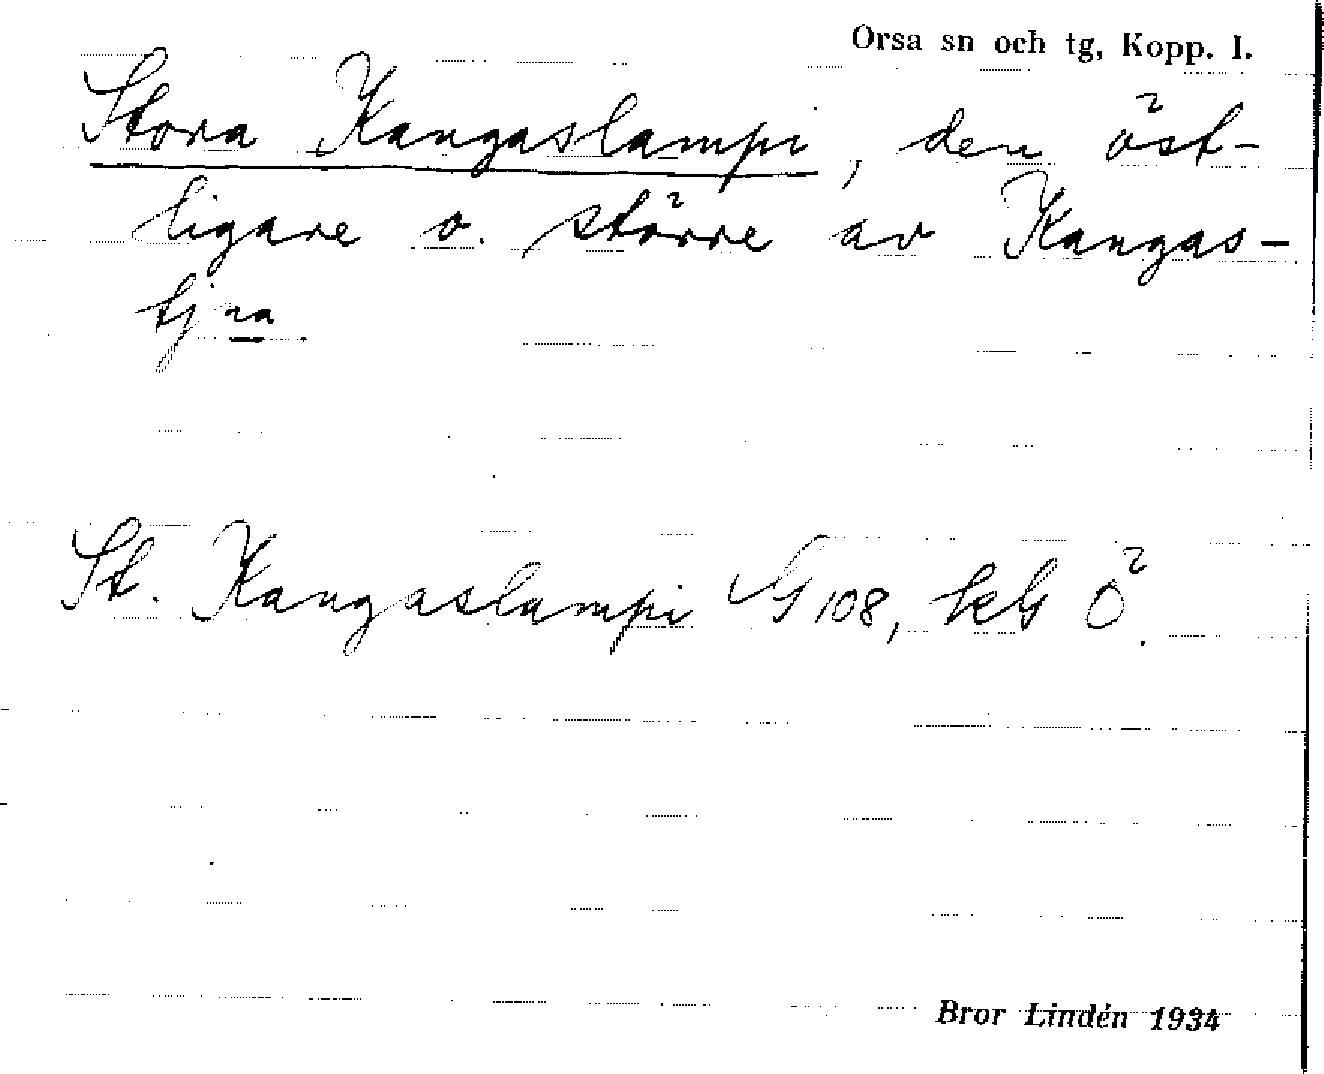 Orsa sn och tg, Kopp. l.
Stora Kangaslampi, den öst-
ligare o. större av Kangas-
tjna
St. Kangaslampi G 108, kG Ö.
Bror Lindén 1934